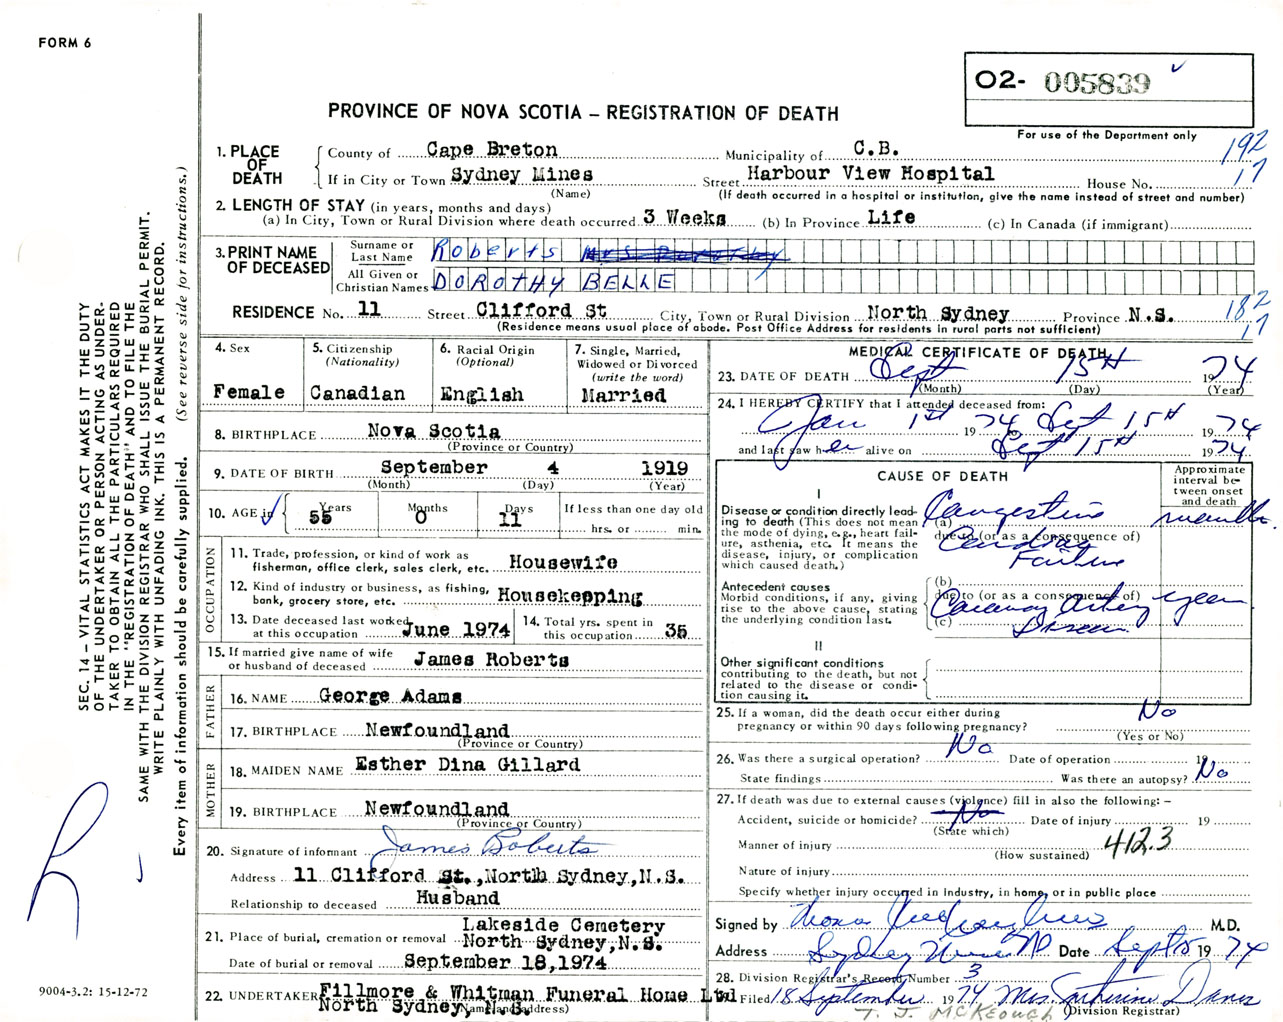 FORM 6
O2- 005839
For use of the Department only
PROVINCE OF NOVA SCOTIA – REGISTRATION OF DEATH
192
17
1. PLACE OF DEATH
County of Cape Breton Municipality of C.B.
If in City or Town Sydney Mines Street Harbour View Hospital House No.
(Name) (If death occurred in a hospital or institution, give the name instead of street and number)
2. LENGTH OF STAY (in years, months and days)
(a) In City, Town or Rural Division where death occurred 3 Weeks (b) In Province Life (c) In Canada (if immigrant)
3. PRINT NAME OF DECEASED
Surname or Last Name Roberts
All Given or Christian Names DOROTHY BELLE
RESIDENCE No. 11 Street Clifford St City, Town or Rural Division North Sydney Province N.S.
(Residence means usual place of abode. Post Office Address for residents in rural parts not sufficient)
182
17
4. Sex
Female
5. Citizenship
(Nationality)
Canadian
6. Racial Origin
(Optional)
English
7. Single, Married,
Widowed or Divorced
(write the word)
Married
8. BIRTHPLACE Nova Scotia
(Province or Country)
9. DATE OF BIRTH September 4 1919
(Month) (Day) (Year)
10. AGE in Years 55 Months 0 Days 11 If less than one day old
hrs. or min.
OCCUPATION
11. Trade, profession, or kind of work as
fisherman, office clerk, sales clerk, etc. Housewife
12. Kind of industry or business, as fishing,
bank, grocery store, etc. Housekepping
13. Date deceased last worked
at this occupation June 1974
14. Total yrs. spent in
this occupation 35
15. If married give name of wife
or husband of deceased James Roberts
FATHER
16. NAME George Adams
17. BIRTHPLACE Newfoundland
(Province or Country)
MOTHER
18. MAIDEN NAME Esther Dina Gillard
19. BIRTHPLACE Newfoundland
(Province or Country)
20. Signature of informant James Roberts
Address 11 Clifford St., North Sydney, N.S.
Relationship to deceased Husband
21. Place of burial, cremation or removal Lakeside Cemetery
North Sydney, N.S.
Date of burial or removal September 18, 1974
22. UNDERTAKER Fillmore & Whitman Funeral Home Ltd
North Sydney, N.S.
(Name and address)
MEDICAL CERTIFICATE OF DEATH
23. DATE OF DEATH Sept 15TH 1974
(Month) (Day) (Year)
24. I HEREBY CERTIFY that I attended deceased from:
Jan 1st 1974 to Sept 15TH 1974
and last saw her alive on Sept 15TH 1974
CAUSE OF DEATH
Approximate
interval be-
tween onset
and death
I
Disease or condition directly lead-
ing to death (This does not mean
the mode of dying, e.g., heart fail-
ure, asthenia, etc. It means the
disease, injury, or complication
which caused death.)
(a) Congestive
due to (or as a consequence of)
Cardiac
Failure
months
Antecedent causes
Morbid conditions, if any, giving
rise to the above cause, stating
the underlying condition last.
(b)
due to (or as a consequence of)
Coronary Artery
(c) Disease
years
II
Other significant conditions
contributing to the death, but not
related to the disease or condi-
tion causing it.
25. If a woman, did the death occur either during
pregnancy or within 90 days following pregnancy? No
(Yes or No)
26. Was there a surgical operation? No Date of operation 19
State findings Was there an autopsy? No
27. If death was due to external causes (violence) fill in also the following: –
Accident, suicide or homicide? No Date of injury 19
(State which)
Manner of injury 412.3
(How sustained)
Nature of injury
Specify whether injury occurred in Industry, in home, or in public place
Signed by M.D.
Address Sydney Mines NS Date Sept 15 1974
28. Division Registrar's Record Number 3
29. Filed 18 September 1974 Mrs. Catherine Davis
(Division Registrar)
T. J. MCKEOUGH
SEC. 14 – VITAL STATISTICS ACT MAKES IT THE DUTY
OF THE UNDERTAKER OR PERSON ACTING AS UNDER-
TAKER TO OBTAIN ALL THE PARTICULARS REQUIRED
IN THE "REGISTRATION OF DEATH" AND TO FILE THE
SAME WITH THE DIVISION REGISTRAR WHO SHALL ISSUE THE BURIAL PERMIT.
WRITE PLAINLY WITH UNFADING INK. THIS IS A PERMANENT RECORD.
Every item of information should be carefully supplied. (See reverse side for instructions.)
R
9004-3.2: 15-12-72